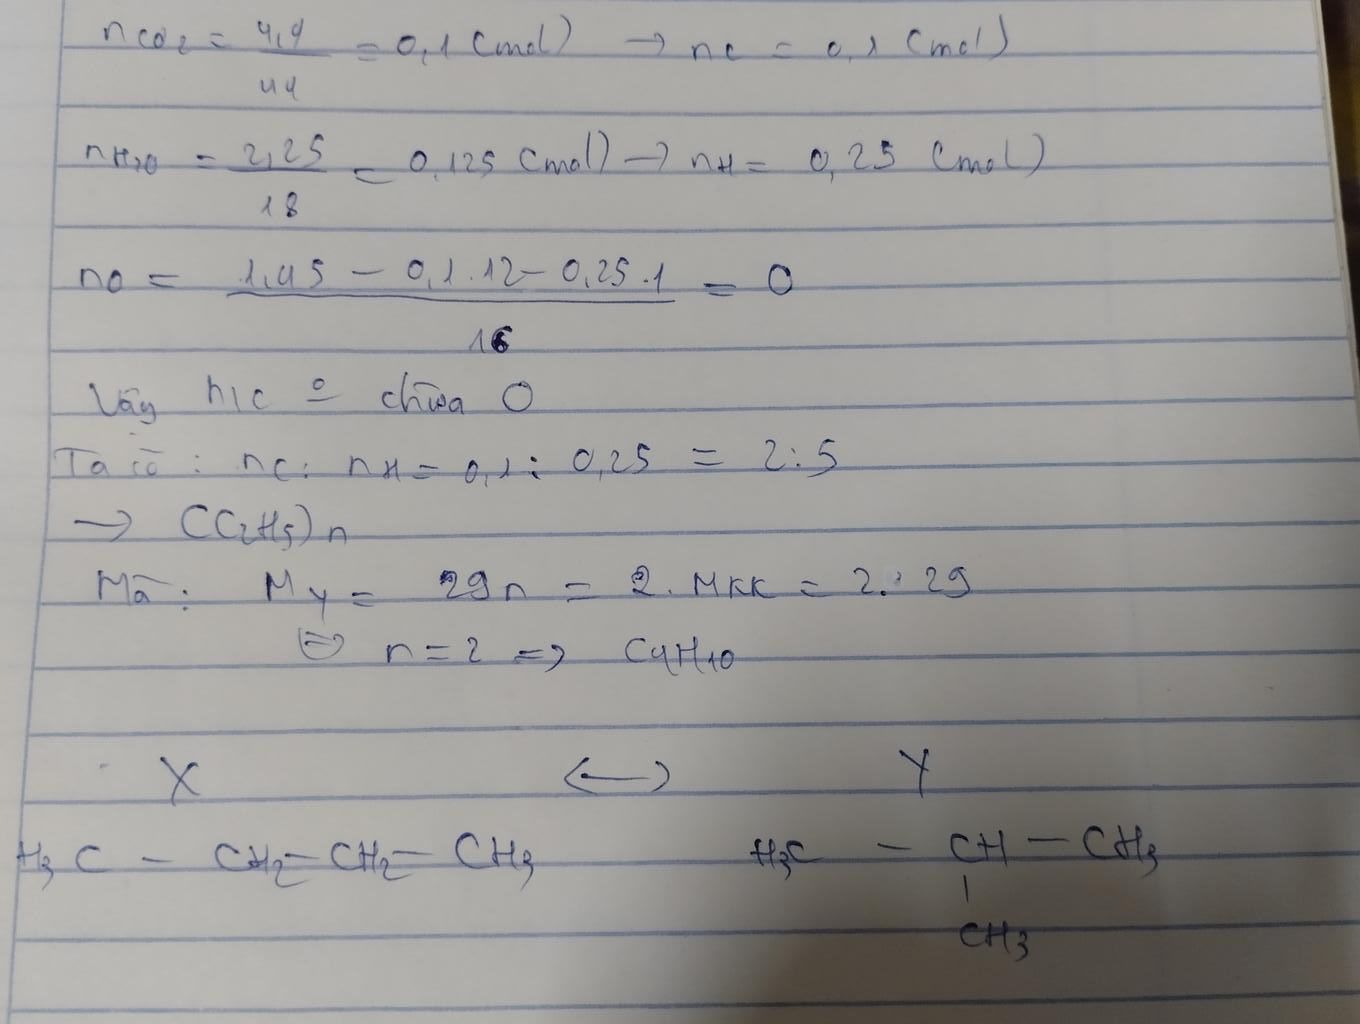 nCO2 = 4,4/44 = 0,1 (mol) → nC = 0,1 (mol)
nH2O = 2,25/18 = 0,125 (mol) → nH = 0,25 (mol)
nO = (1,45 – 0,1.12 – 0,25.1)/16 = 0
Vậy h/c o chứa O
Ta có : nC : nH = 0,1 : 0,25 = 2:5
→ (C2H5)n
Mà : MY = 29n = 2.MKK = 2.29
⇔ n = 2 => C4H10
X ⟷ Y
H3C – CH2 – CH2 – CH3 H3C – CH – CH3
|
CH3